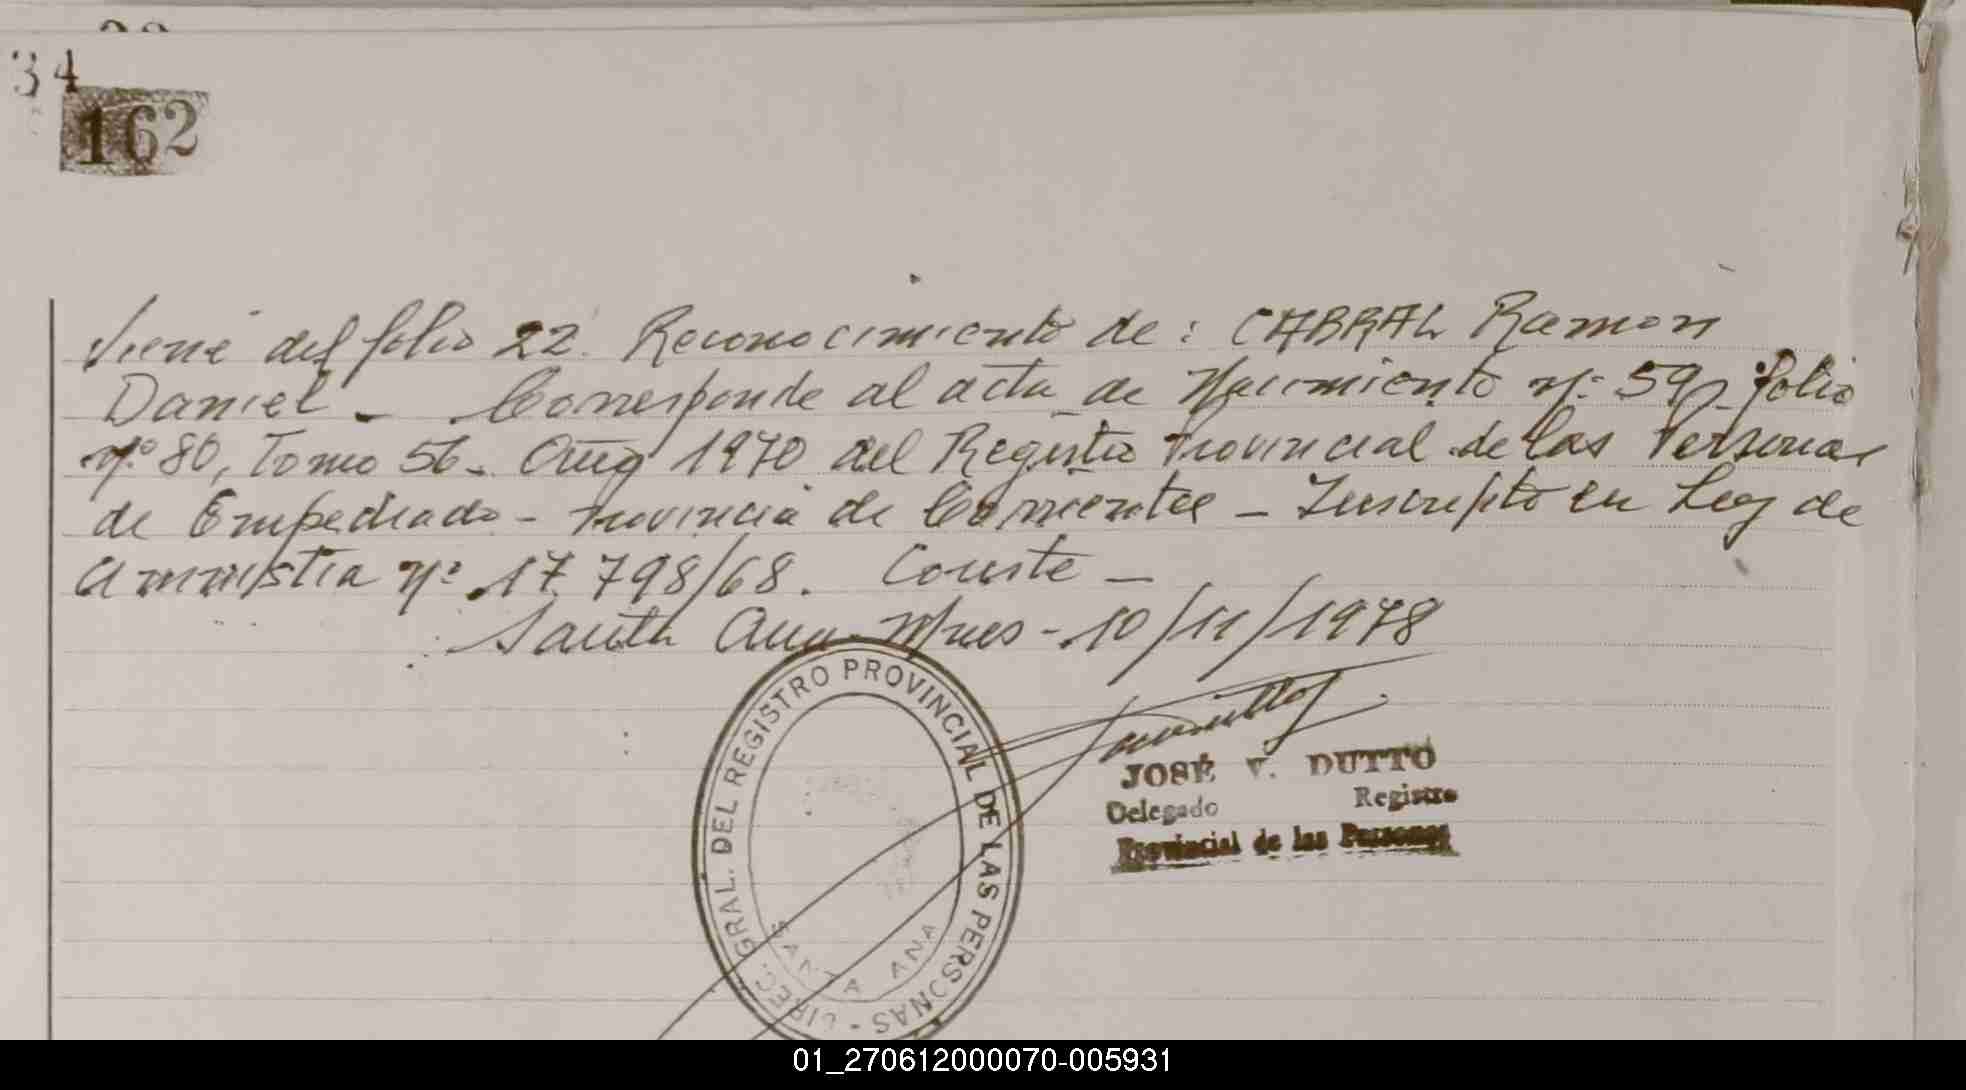 34
162
Viene del folio 22. Reconocimiento de: CABRAL Ramon
Daniel - Corresponde al acta de Nacimiento nº 59, folio
nº 80, Tomo 56 - Año 1970 del Registro Provincial de las Personas
de Empedrado - Provincia de Corrientes - Inscripto en Ley de
Amnistia nº 17.798/68. Conste -
Santa Ana - Mnes - 10/11/1978
DIREC. GRAL. DEL REGISTRO PROVINCIAL DE LAS PERSONAS -
SANTA ANA
JOSÉ V. DUTTO
Delegado Registro
Provincial de las Personas
01_270612000070-005931